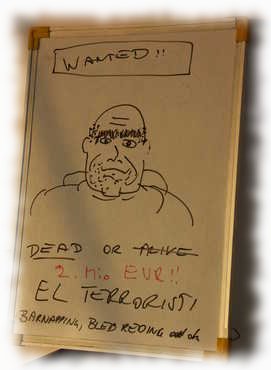 WANTED!!
DEAD OR ALIVE
2. Mio EUR!!
EL TERRORISTI
BARNAPPING, BLED REDING